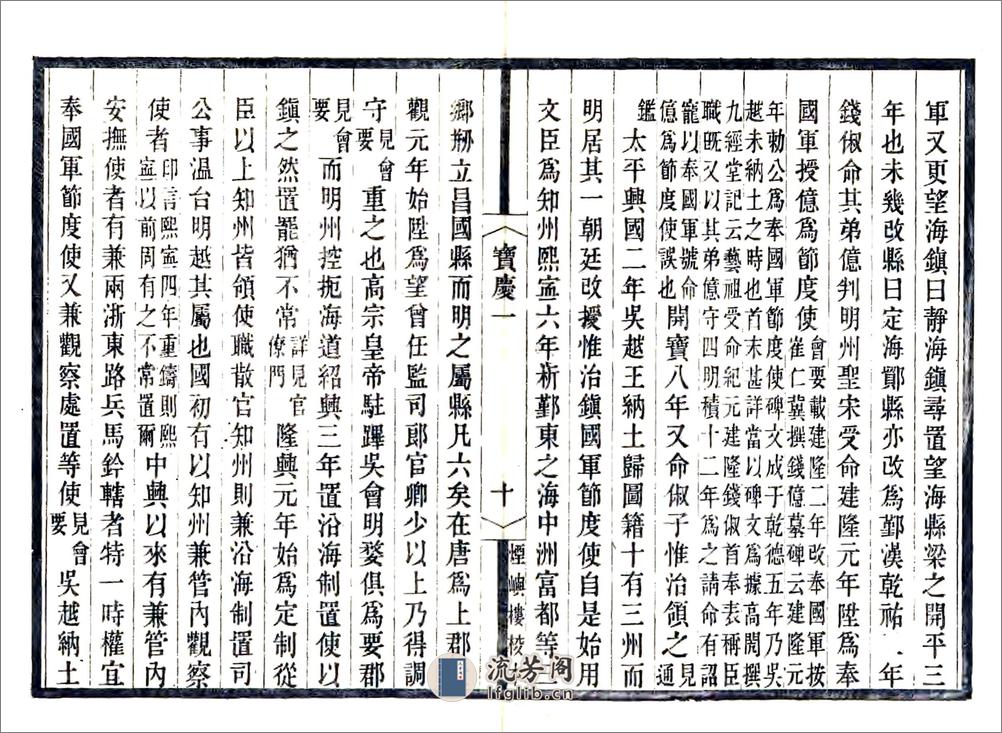 軍又更望海鎮曰靜海鎮尋置望海縣梁之開平三
年也未幾改縣曰定海鄮縣亦改爲鄞漢乾祐 年
錢俶命其弟億判明州聖宋受命建隆元年陞爲奉
國軍授億爲節度使會要載建隆二年改奉國軍按
崔仁冀撰錢億墓碑云建隆元
年勅公爲奉國軍節度使碑文成于乾德五年乃吳
越未納土之時也首末甚詳當以碑文爲據高閌撰
九經堂記云藝祖受命紀元建隆錢俶首奉表稱臣
職旣又以其弟億守四明積十二年爲之請命有詔
寵以奉國軍號命
億爲節度使誤也開寶八年又命俶子惟治領之見通
鑑太平興國二年吳越王納土歸圖籍十有三州而
明居其一朝廷改授惟治鎮國軍節度使自是始用
文臣爲知州熙寧六年析鄞東之海中洲富都等三
寶慶一
十
煙嶼樓校
鄉剏立昌國縣而明之屬縣凡六矣在唐爲上郡
觀元年始陞爲望曾任監司郎官卿少以上乃得調
守見會
要重之也高宗皇帝駐蹕吳會明婺俱爲要郡
見會
要而明州控扼海道紹興三年置沿海制置使以
鎮之然置罷猶不常詳見官
僚門隆興元年始爲定制從
臣以上知州皆領使職散官知州則兼沿海制置司
公事温台明越其屬也國初有以知州兼管內觀察
使者印言熙寧四年重鑄則熙
寧以前固有之不常置爾中興以來有兼管內
安撫使者有兼兩浙東路兵馬鈐轄者特一時權宜
奉國軍節度使又兼觀察處置等使見會
要吳越納土
流芳阁
lfglib.cn